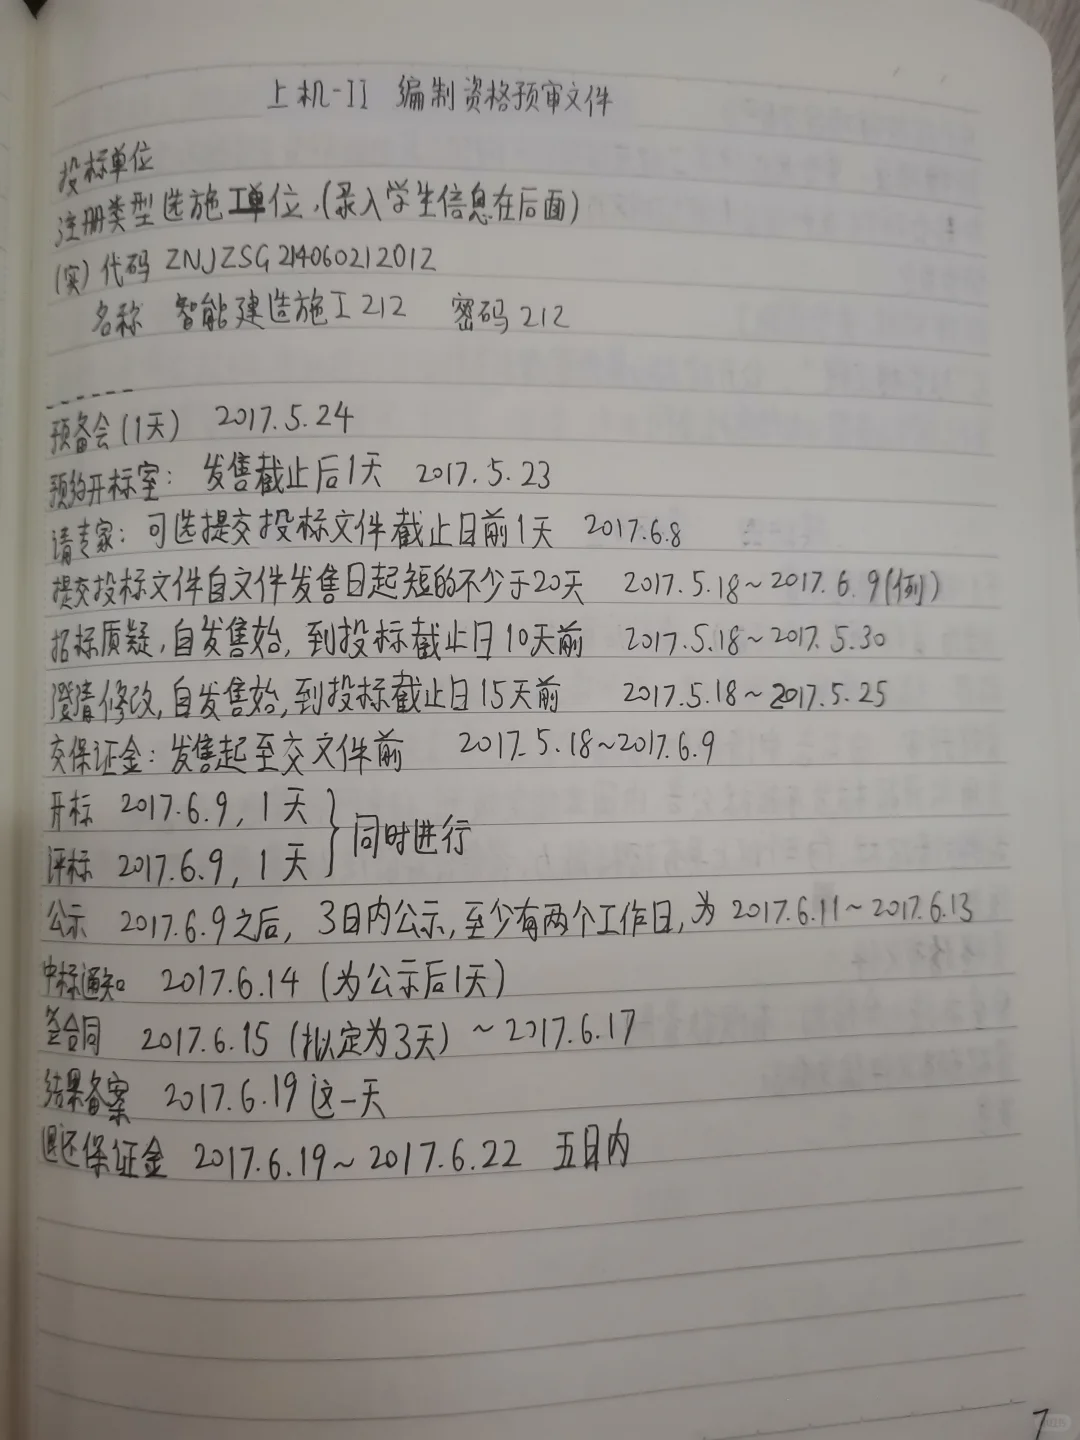 上机-II 编制资格预审文件
投标单位
注册类型选施工单位,(录入学生信息在后面)
(实)代码 ZNJZSG214060212012
名称 智能建造施工212 密码212
预备会(1天) 2017.5.24
预约开标室: 发售截止后1天 2017.5.23
请专家: 可选提交投标文件截止日前1天 2017.6.8
提交投标文件自文件发售日起短的不少于20天 2017.5.18~2017.6.9(例)
招标质疑,自发售始,到投标截止日10天前 2017.5.18~2017.5.30
澄清修改,自发售始,到投标截止日15天前 2017.5.18~2017.5.25
交保证金:发售起至交文件前 2017.5.18~2017.6.9
开标 2017.6.9,1天
同时进行
评标 2017.6.9,1天
公示 2017.6.9之后, 3日内公示,至少有两个工作日,为2017.6.11~2017.6.13
中标通知 2017.6.14 (为公示后1天)
签合同 2017.6.15 (拟定为3天) ~2017.6.17
结果备案 2017.6.19这一天
退还保证金 2017.6.19~2017.6.22 五日内
7